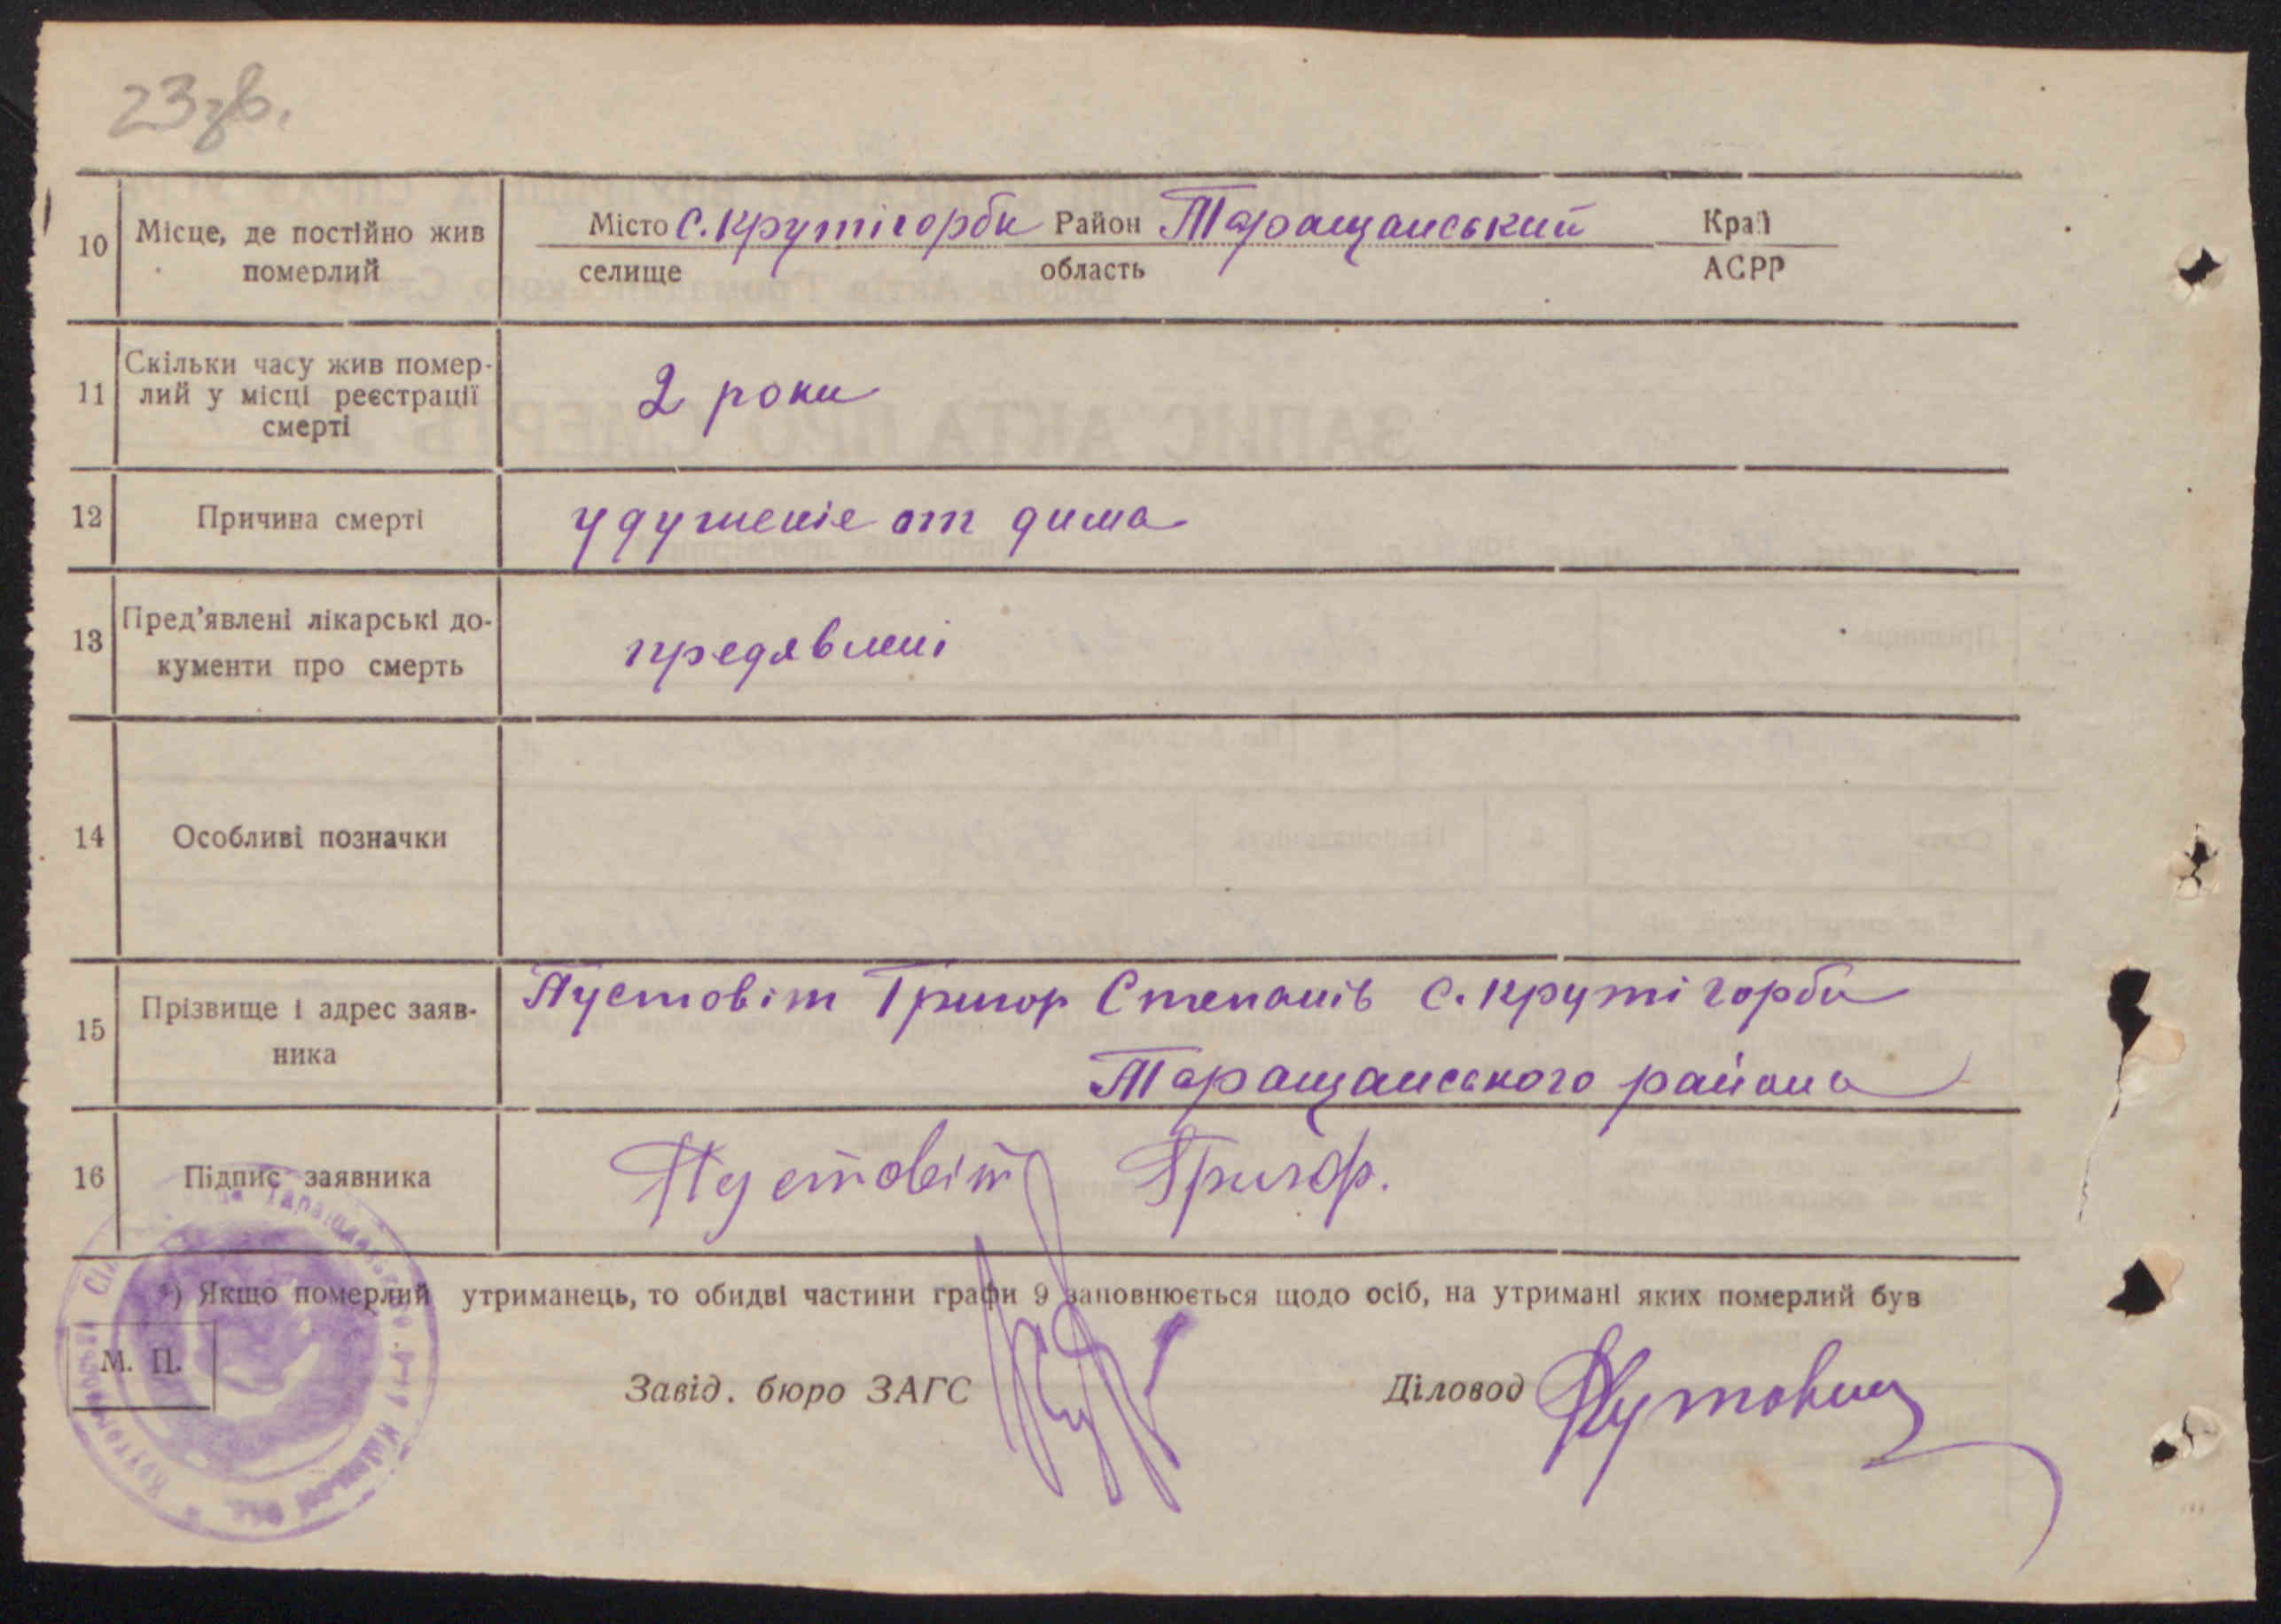 23зв.
10 Місце, де постійно жив померлий
Місто С. Крутігорби Район Таращанський Край
селище область АСРР
11 Скільки часу жив помер-
лий у місці реєстрації
смерті
2 роки
12 Причина смерті удушеніе от дима
13 Пред’явлені лікарські до-
кументи про смерть
предявлені
14 Особливі позначки
15 Прізвище і адрес заяв-
ника
Пустовіт Григор Степанів С. Крутігорби
Таращанського района
16 Підпис заявника Пустовіт Григор.
*) Якщо померлий утриманець, то обидві частини графи 9 заповнюється щодо осіб, на утримані яких померлий був
М. П.
Завід. бюро ЗАГС Діловод